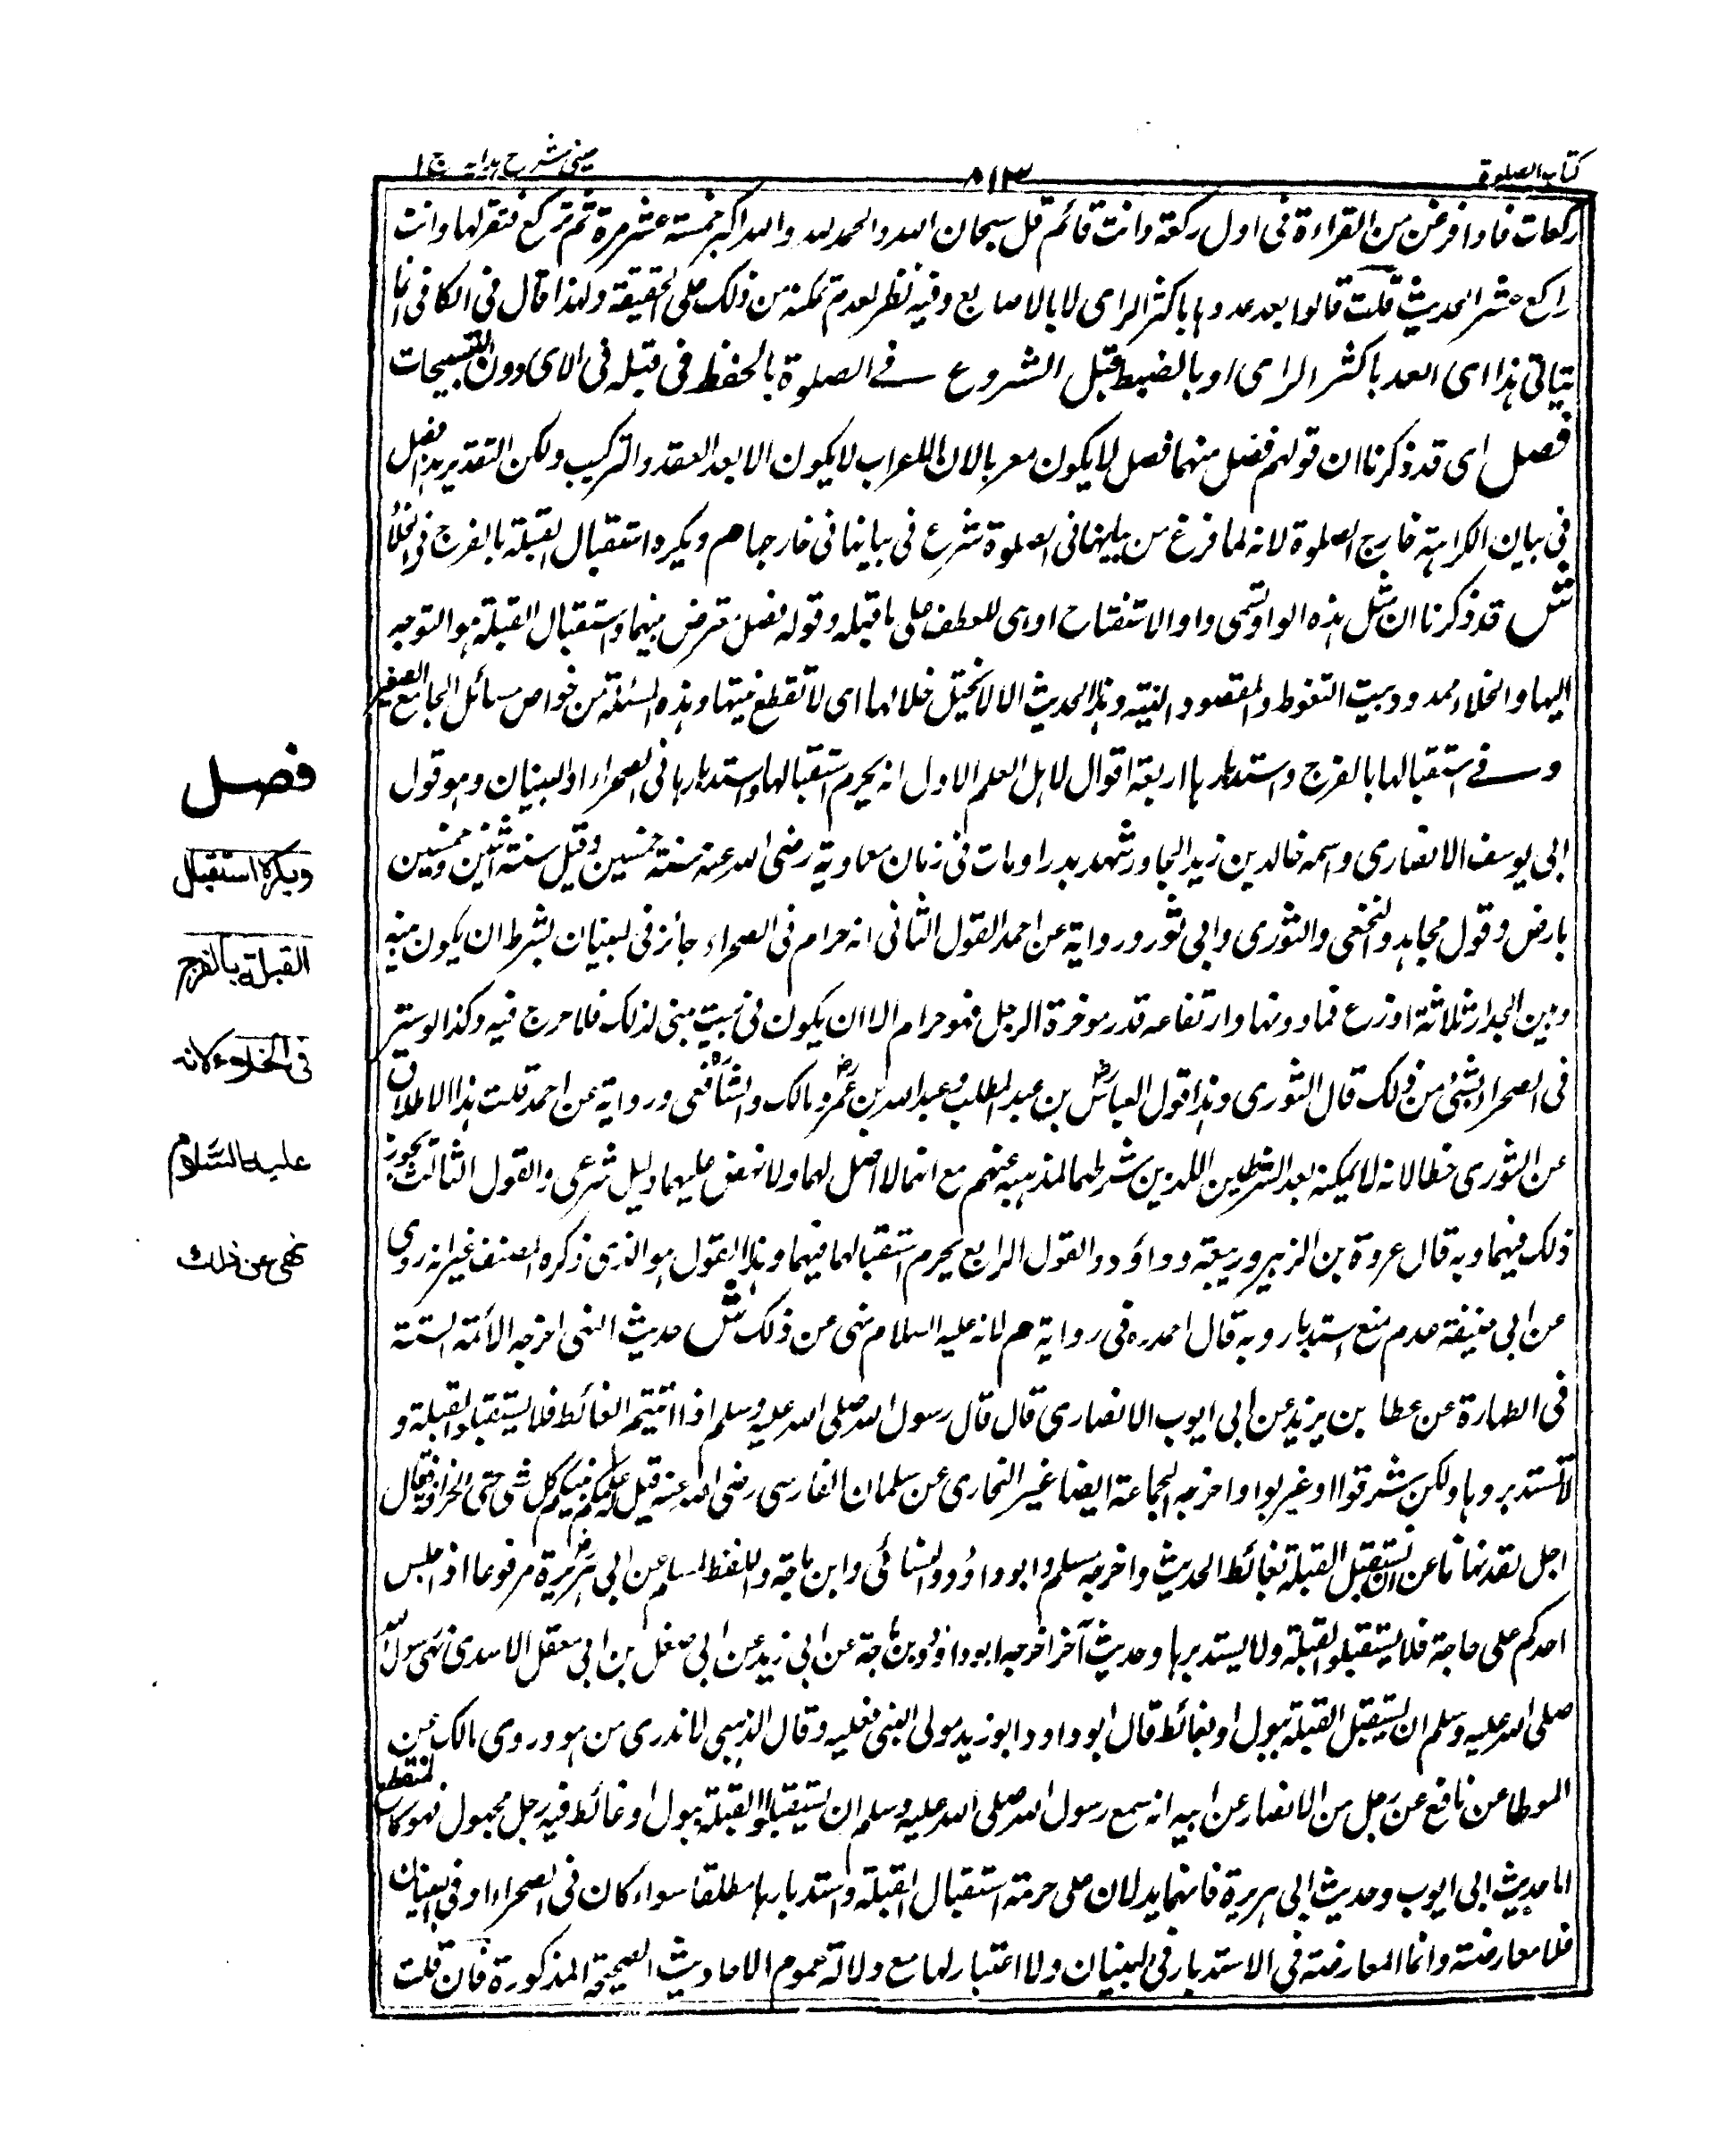 كتاب الصلوة
٨١٣
عينى شرح هدايه ج ١
ركعات فاذا فرغت من القراءة فى اول ركعة وانت قائم قل سبحان الله والحمد لله والله اكبر خمسة عشر مرة ثم تركع فتقرلها وانت
راكع عشر الحديث قلت قالوا بعد عدوها باكثر الراى لا بالاصابع وفيه نظر لعدم تمكنه من ذلك على الحقيقة ولهذا قال فى الكافى انما
يتاتى هذا اى العد باكثر الراى او بالضبط قبل الشروع فے الصلوة بالحفظ فى قبله فى الاى دون التسبيحات
فصل اى قد ذكرنا ان قولهم فصل منهما فصل لا يكون معربا لان الاعراب لا يكون الا بعد العقد والتركيب ولكن التقدير هذا فصل
فى بيان الكراهية خارج الصلوة لانه لما فرغ من بيانها فى الصلوة شرع فى بيانها فى خارجها م ويكره استقبال القبلة بالفرج فى الخلأ
ش قد ذكرنا ان مثل هذه الواو تسمى واو الاستفتاح او هى للعطف على ما قبله وقوله فصل معترض بينهما واستقبال القبلة هو التوجه
اليها والخلاء ممدود بيت التغوط والمقصود النية وهذا الحديث الا لا تختل خلالها اى لا تقطع نيتها وهذه المسئلة من خواص مسائل الجامع الصغير
وفے استقبالها بالفرج واستدبارها اربعة اقوال لاهل العلم الاول انه يحرم استقبالها واستدبارها فى الصحراء او البنيان وهو قول
ابى يوسف الانصارى واسمه خالد بن زيد البجاور شهد بدرا ومات فى زمان معاوية رضى الله عنه سنة خمسين وقيل سنة اثنين وخمسين
بارض وقول مجاهد والنخعى والثورى وابى ثور ورواية عن احمد القول الثانى انه حرام فى الصحراء جائز فى البنيان بشرط ان يكون بينه
وبين الجدار ثلاثة اذرع فما دونها وارتفاعه قدر موخرة الرحل فهو حرام الا ان يكون فى بيت بنى لذلك فلا حرج فيه وكذا لو ستر
فى الصحراء بشئ من ذلك قال الثورى وهذا قول العباس بن عبد المطلب وعبد الله بن عمر ومالك والشافعى ورواية عن احمد قلت هذا الاطلاق
عن الثورى خطا لانه لا يمكنه بعد الشرطين اللذين شرطهما لمذهبه عنهم مع انهما لا اصل لهما ولا نهض عليهما دليل شرعى والقول الثالث يجوز
ذلك فيهما وبه قال عروة بن الزبير وربيعة وداؤد والقول الرابع يحرم استقبالها فيهما وهذا القول هو الذى ذكره المصنف غير انه روى
عن ابى حنيفة عدم منع استدبار وبه قال احمد ره فى رواية م لانه عليه السلام نهى عن ذلك ش حديث النهى اخرجه الائمة الستة
فى الطهارة عن عطا بن يزيد عن ابى ايوب الانصارى قال قال رسول الله صلى الله عليه وسلم اذا اتيتم الغائط فلا يستقبلوا القبلة و
لا تستدبروها ولكن شرقوا او غربوا واخرجه الجماعة ايضا غير البخارى عن سلمان الفارسى رضى الله عنه قيل له علمكم نبيكم كل شى حتى الخراءة فقال
اجل لقد نهانا عن ان نستقبل القبلة بغائط الحديث واخرجه مسلم وابو داؤد والنسائى وابن ماجة واللفظ لمسلم عن ابى هريرة مرفوعا اذا جلس
احدكم على حاجة فلا يستقبلو القبلة ولا يستدبرها وحديث آخر اخرجه ابو داؤد وبن ماجة عن ابى زيد عن ابى معقل بن ابى معقل الاسدى نهى رسول الله
صلى الله عليه وسلم ان يستقبل القبلة ببول او بغائط قال ابو داود ابو زيد مولى النبى فعليه وقال الذهبى لا ندرى من هو وروى مالك عن
الموطا عن نافع عن رجل من الانصار عن ابيه انه سمع رسول الله صلى الله عليه وسلم ان يستقبلوا القبلة ببول او غائط فيه رجل مجهول فهو كالمنقطع
اما حديث ابى ايوب وحديث ابى هريرة فانهما يدلان على حرمة استقبال القبلة واستدبارها مطلقا سواء كان فى الصحراء او فى البنيان
فلا معارضة وانما المعارضة فى الاستدبار فى البنيان ولا اعتبار لها مع دلالة عموم الاحاديث الصحيحة المذكورة فان قلت
فصل
ويكره استقبال
القبلة بالفرج
فى الخلاء لانه
عليه السلام
نهى عن ذلك